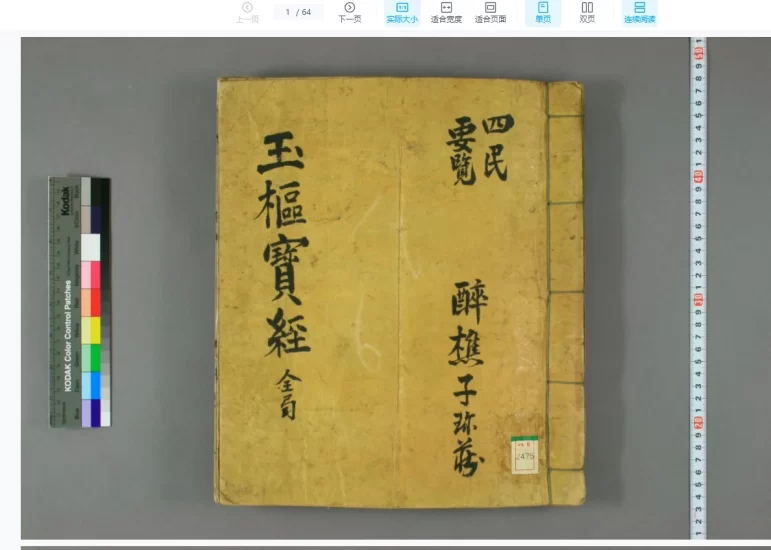 上一页
1 / 64
下一页
实际大小
适合宽度
适合页面
单页
双页
连续阅读
四民
要覽
醉樵子珎藏
玉樞寶經
全局
2475
Kodak
KODAK Color Control Patches